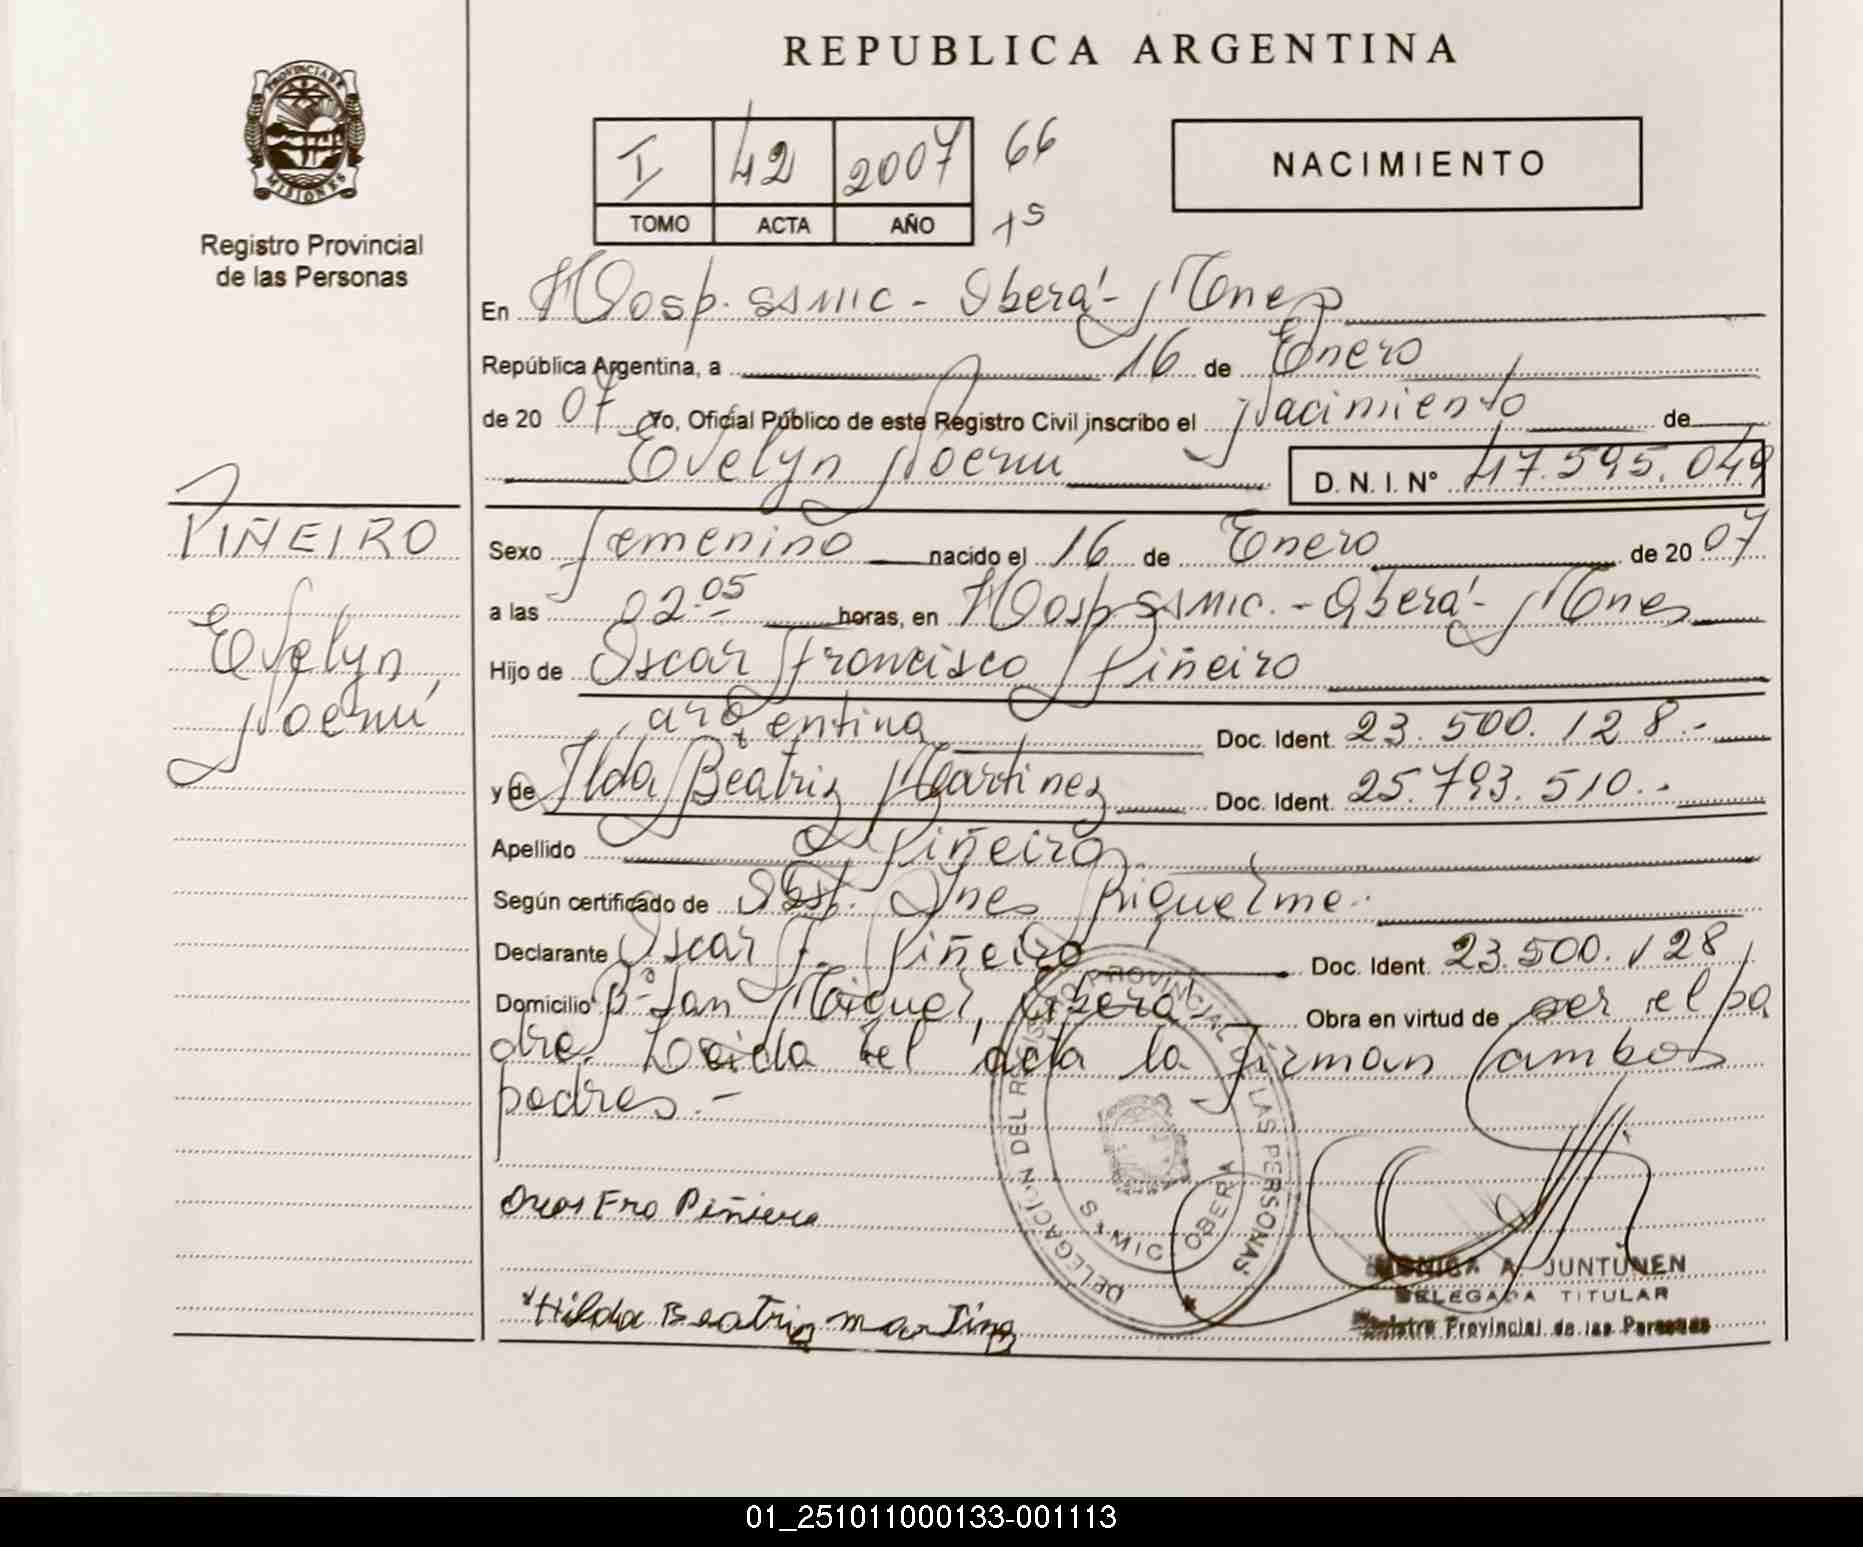 REPUBLICA ARGENTINA
PROVINCIA DE
MISIONES
Registro Provincial
de las Personas
I 42 2007 66
TOMO ACTA AÑO 15
NACIMIENTO
En Hosp. SAMIC - Oberá - Mnes
República Argentina, a 16 de Enero
de 20 07 Yo, Oficial Público de este Registro Civil inscribo el Nacimiento de
Evelyn Noemí D. N. I. Nº 47.595.049
PIÑEIRO
Evelyn
Noemí
Sexo femenino nacido el 16 de Enero de 20 07
a las 02.05 horas, en Hosp SAMIC. - Oberá - Mnes
Hijo de Oscar Francisco Piñeiro
argentina Doc. Ident. 23.500.128.-
y de Ilda Beatriz Martinez Doc. Ident. 25.793.510.-
Apellido Piñeiro
Según certificado de Obst. Ines Riquelme.
Declarante Oscar F. Piñeiro Doc. Ident. 23.500.128
Domicilio Bº San Miguel, Oberá Obra en virtud de ser el pa
dre. Leida el acta la firman ambos
padres.-
DELEGACION DEL REGISTRO PROVINCIAL DE LAS PERSONAS
SAMIC OBERA
Fro Piñiero
Hilda Beatriz martinez
MONICA A JUNTUNEN
DELEGADA TITULAR
Registro Provincial de las Personas
01_251011000133-001113